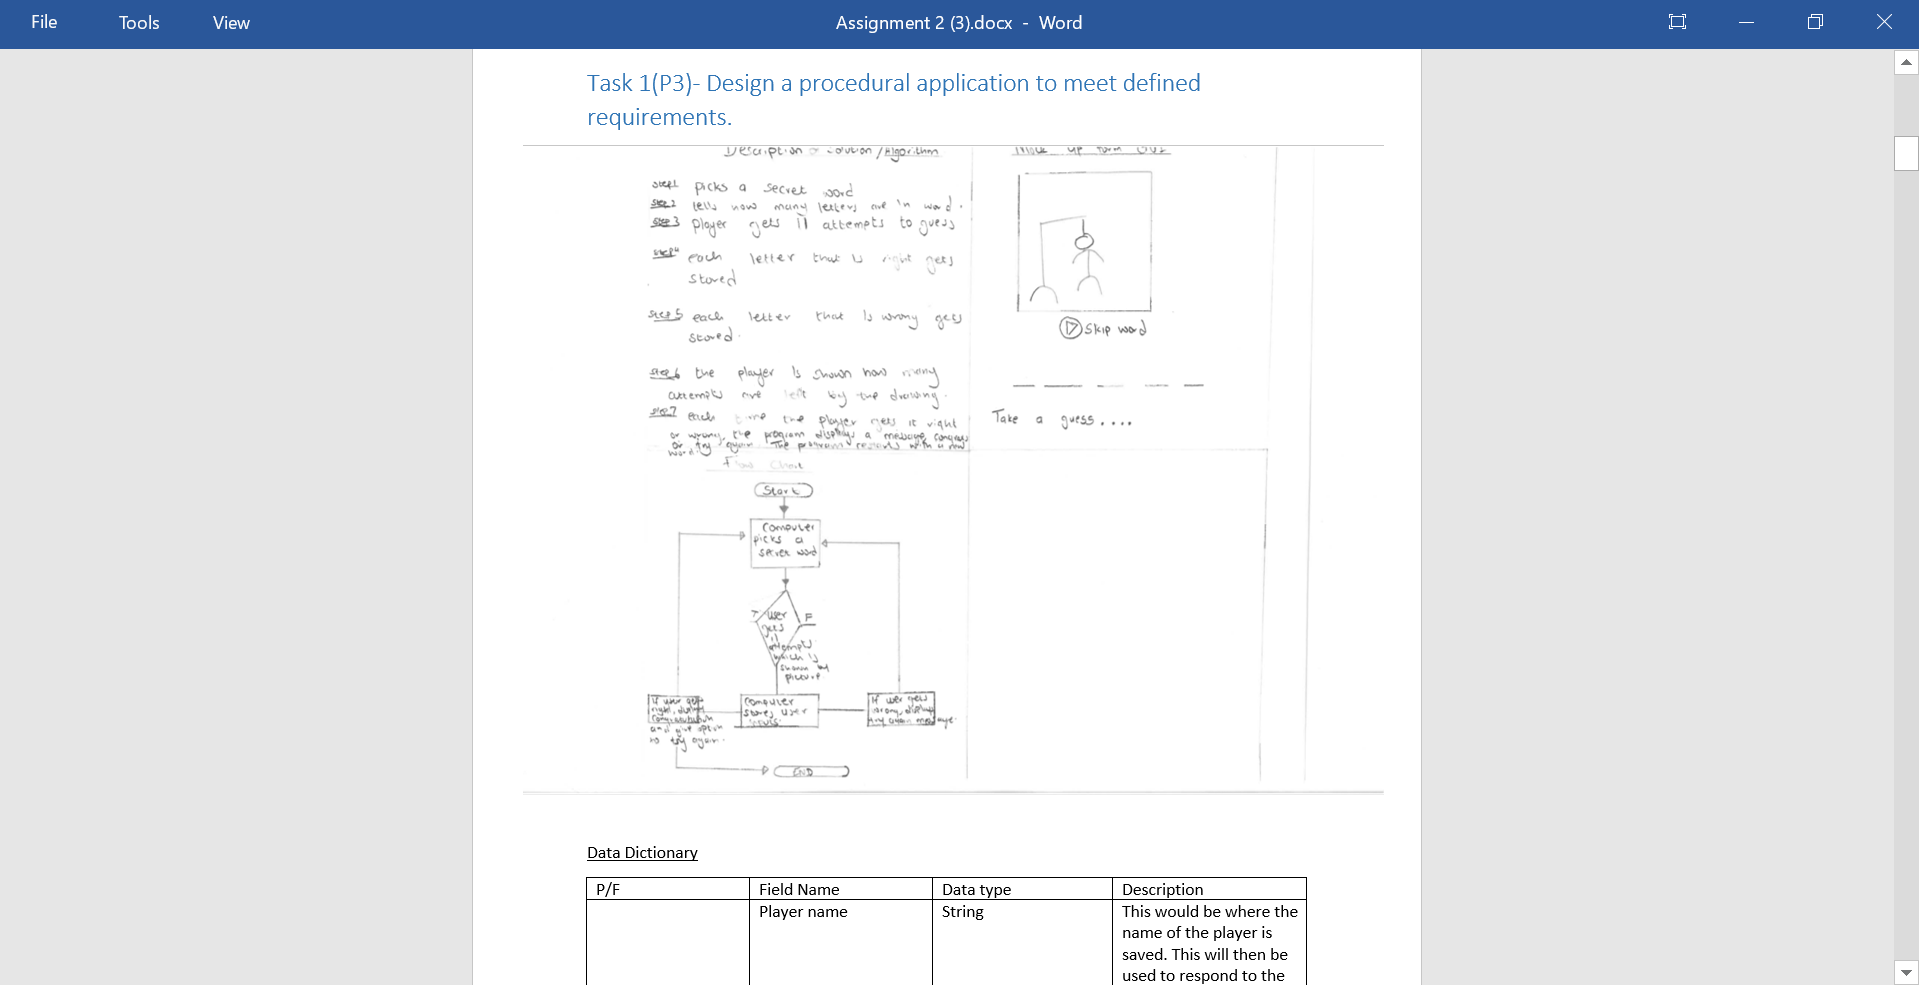 File Tools View Assignment 2 (3).docx - Word
Task 1(P3)- Design a procedural application to meet defined
requirements.
Description of Solution/Algorithm
Mock up form GUI
Step1 picks a secret word
Step 2 tells how many letters are in word.
Step 3 player gets 11 attempts to guess
Step4 each letter that is right gets
stored
Step 5 each letter that is wrong gets
stored.
Step 6 the player is shown how many
attempts are left by the drawing.
Step7 each time the player gets it right
or wrong, the program displays a message congrats
or try again. The program restarts with a new
word.
Skip word
Take a guess....
Flow Chart
Start
Computer
picks a
secret word
T
F
user
gets
11
attempts
which is
shown by
picture
If user gets
right, display
congratulation
and give option
to try again.
Computer
stores user
inputs
If user gets
wrong, display
try again message.
END
Data Dictionary
P/F Field Name Data type Description
Player name String This would be where the
name of the player is
saved. This will then be
used to respond to the